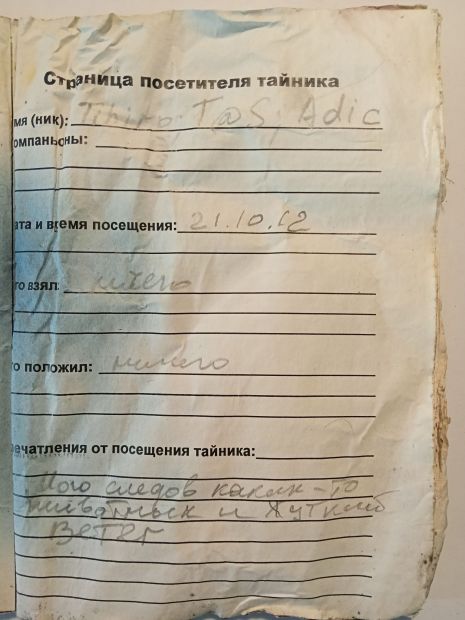 Страница посетителя тайника
мя (ник): T@S, Adic
омпаньоны:
ата и время посещения: 21.10.12
го взял: ничего
о положил: ничего
ечатления от посещения тайника:
следов каких-то
животных и жуткий
ветер